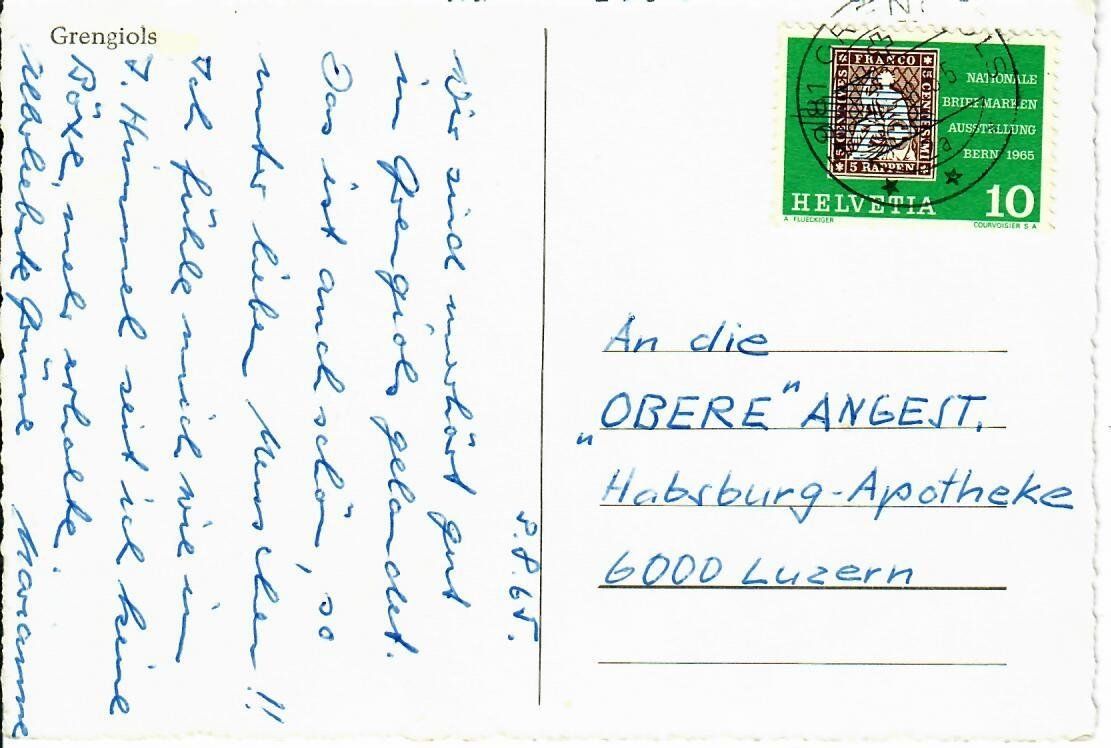 Grengiols
8.8.65.
Wir sind unerhört gut
in Grengiols gelandet.
Das ist auch schön, so
unter lieben Menschen!!
Ich fühle mich wie im
7. Himmel seit ich keine
Böxe, mehr erhalte.
Allerliebste Grüsse Marianne
FRANCO
5 CENTIMES
5 CENTESIMI
5 RAPPEN
NATIONALE
BRIEFMARKEN
AUSSTELLUNG
BERN 1965
HELVETIA 10
A FLUECKIGER COURVOISIER S A
An die
"OBERE" ANGEST.
Habsburg-Apotheke
6000 Luzern